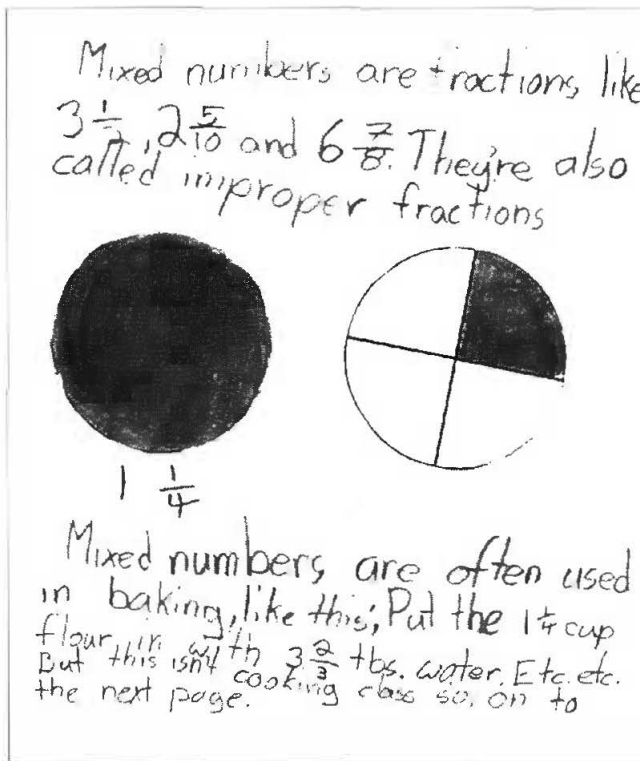 Mixed numbers are fractions, like
3 1/2, 2 5/10 and 6 7/8. They're also
called improper fractions
1 1/4
Mixed numbers are often used
in baking, like this; Put the 1 1/4 cup
flour in with 3 2/3 tbs. water. Etc. etc.
But this isn't cooking class so, on to
the next page.